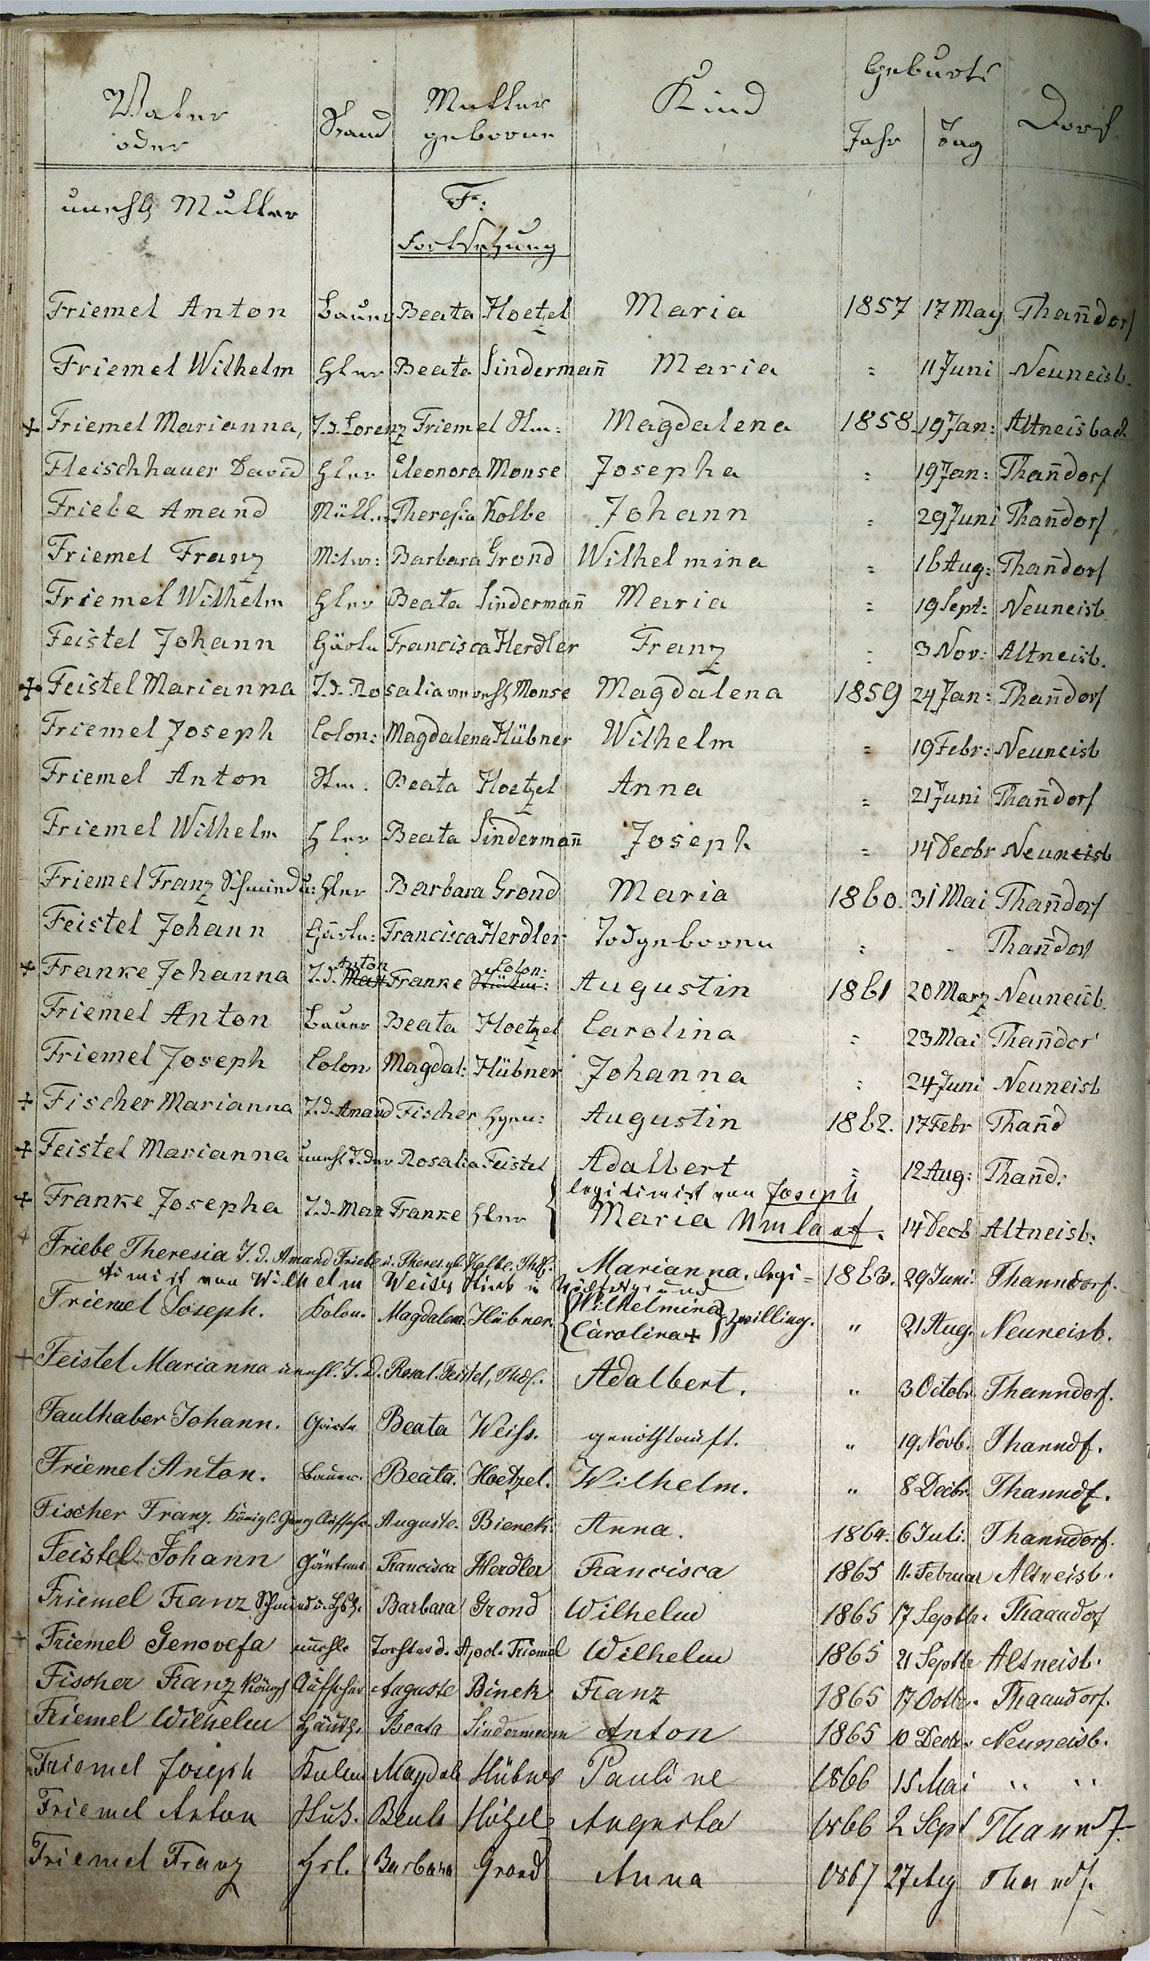 Vater Stand Mutter Kind Geburts Dorf
oder geborne Jahr Tag
unehl Mutter F:
Fortsetzung
Friemel Anton Bauer Beata Hoetzel Maria 1857 17 May Thañdorf
Friemel Wilhelm Hler Beata Lindermañ Maria = 11 Juni Neuneisb.
+ Friemel Marianna, T.d. Lorenz Friemel Stm: Magdalena 1858. 19 Jan: Altneisbach
Fleischhauer David Hler Eleonora Monse Josepha = 19 Jan: Thañdorf
Friebe Amand Müll. Theresia Kolbe Johann = 29 Juni Thañdorf
Friemel Franz Barbara Grond Wilhelmina = 16 Aug: Thañdorf
Friemel Wilhelm Hler Beata Lindermañ Maria = 19 Sept: Neuneisb
Feistel Johann Gärtn Francisca Herdler Franz = 3 Nov: Altneisb.
+ Feistel Marianna T.d. Rosalia Monse Magdalena 1859 24 Jan: Thañdorf
Friemel Joseph Colon: Magdalena Hübner Wilhelm = 19 Febr: Neuneisb
Friemel Anton Stm. Beata Hoetzel Anna = 21 Juni Thañdorf
Friemel Wilhelm Hler Beata Lindermañ Joseph = 14 Decbr Neuneisb
Friemel Franz Schmied u: Hler Barbara Grond Maria 1860. 31 Mai Thañdorf
Feistel Johann Gärtn: Francisca Herdler Todgeboren = - Thañdorf
+ Franke Johanna T.d. Anton Franke Colon: Augustin 1861 20 Marz Neuneisb.
Friemel Anton Bauer Beata Hoetzel Carolina = 23 Mai Thañdor
Friemel Joseph Colon Magdal: Hübner Johanna = 24 Juni Neuneisb
+ Fischer Marianna T.d. Amand Fischer Augustin 1862. 17 Febr Thañd
+ Feistel Marianna unehl T. der Rosalia Feistel Adalbert = 12 Aug: Thañd.
legitimirt von Joseph
+ Franke Josepha T.d. Max Franke Hler Maria Umlauf. 14 Decb Altneisb.
+ Friebe Theresia T.d. Amand Friebe u. Theres. gb. Kolbe. Thdf. Marianna. legi = 1863. 29 Juni Thanndorf.
timirt von Wilhelm Weiss
Friemel Joseph. Kolon. Magdalen. Hübner. Wilhelmina Carolina + Zwilling. " 21 Aug. Neuneisb.
+ Feistel Marianna unehl. T.d. Rosal. Feistel, Thdf. Adalbert. " 3 Octobr. Thanndorf.
Faulhaber Johann. Gärtn Beata Weiss. genothtauft. " 19 Novb. Thanndf.
Friemel Anton. Bauer. Beata. Hoetzel. Wilhelm. " 8 Decbr. Thanndf.
Fischer Franz. Königl. Grenz Aufseh. Auguste. Bienek. Anna. 1864. 6 Juli. Thanndorf.
Feistel Johann Gärtner Francisca Herdler Francisca 1865 11. Februar Altneisb.
Friemel Franz Schmied u. Barbara Grond Wilhelm 1865 17 Septbr. Thanndorf
+ Friemel Genovefa unehle Tochter d. Apol. Friemel Wilhelm 1865 21 Septbr Altneisb.
Fischer Franz Königl Aufseher Auguste Binek Franz 1865 17 Octbr. Thanndorf.
Friemel Wilhelm Häusl. Beata Lindermann Anton 1865 10 Decbr. Neuneisb.
Friemel Joseph Magdale Hübner Pauline 1866 15 Mai " "
Friemel Anton Beate Hötzel Augusta 1866 2 Sept Thanndf.
Friemel Franz Hsl. Barbara Grond Anna 1867 27 Aug Thandf.